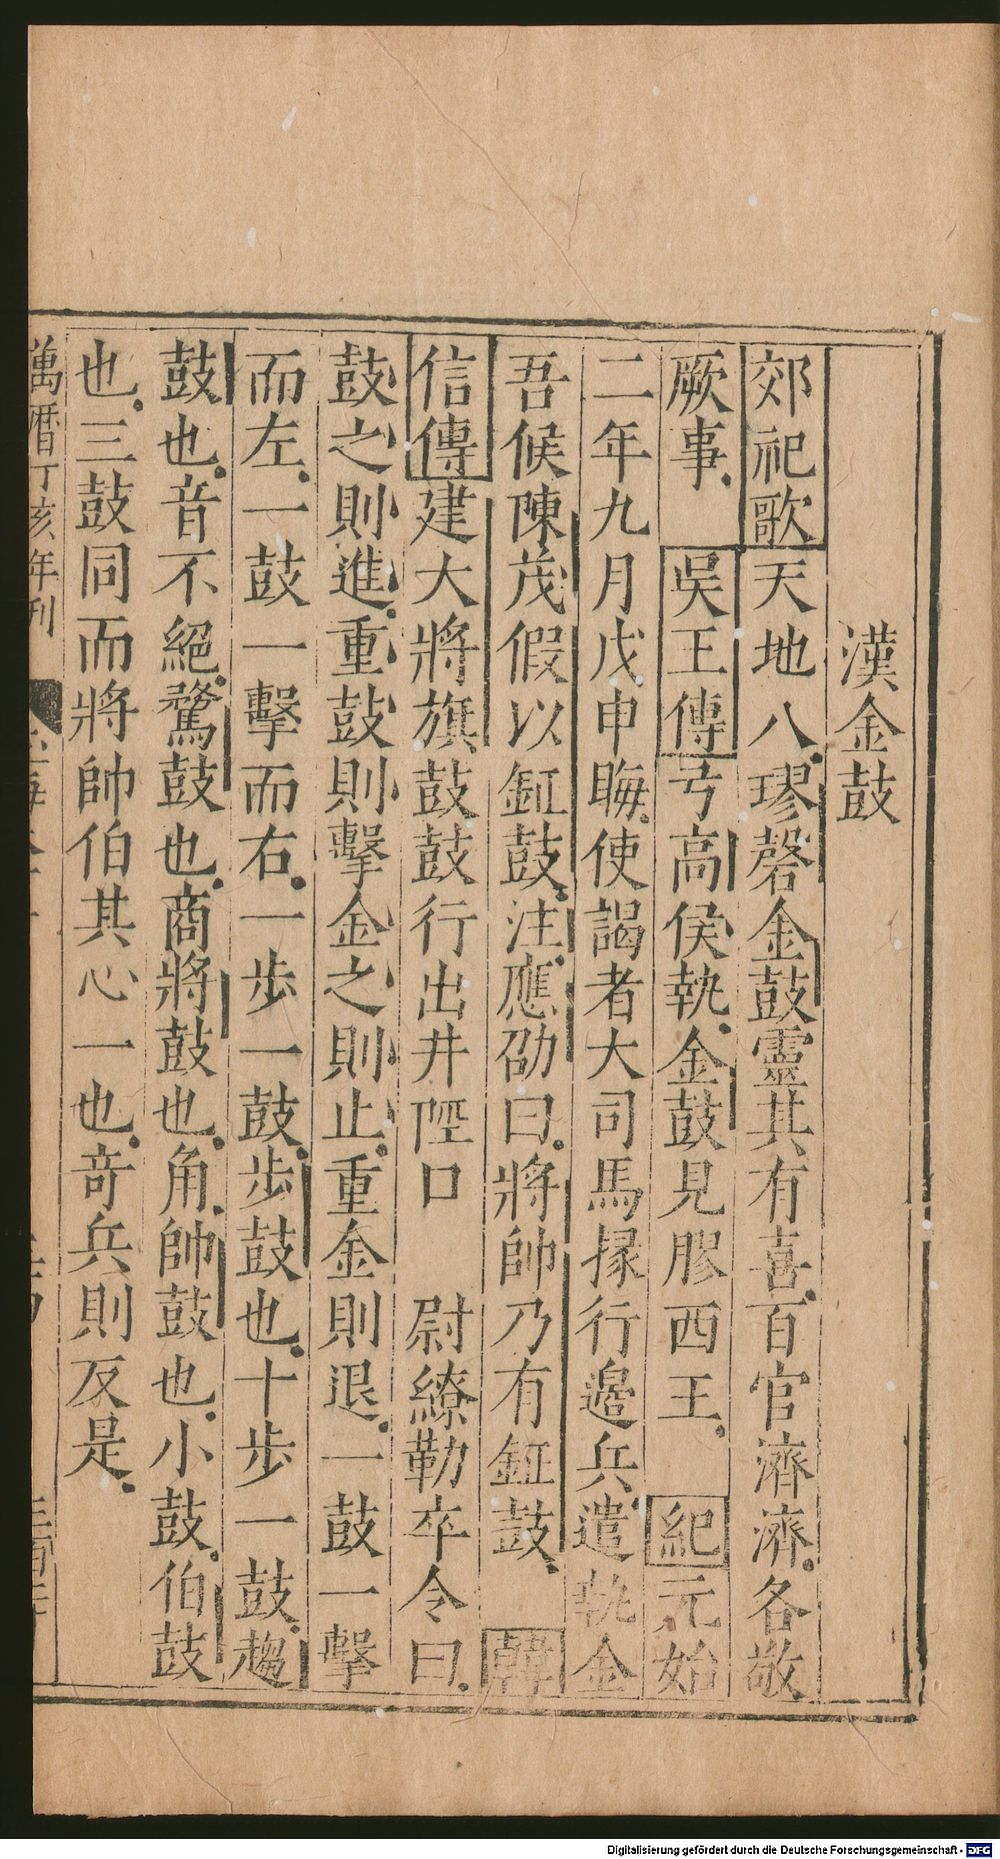 漢金鼓
郊祀歌天地八璆磬金鼓靈其有喜百官濟濟各敬
厥事 吳王傳弓高侯執金鼓見膠西王 紀元始
二年九月戊申晦使謁者大司馬掾行邊兵遣執金
吾候陳茂假以鉦鼓注應劭曰將帥乃有鉦鼓 韓
信傳建大將旗鼓鼓行出井陘口 尉繚勒卒令曰
鼓之則進重鼓則擊金之則止重金則退一鼓一擊
而左一鼓一擊而右一步一鼓步鼓也十步一鼓趨
鼓也音不絕騖鼓也商將鼓也角帥鼓也小鼓伯鼓
也三鼓同而將帥伯其心一也奇兵則反是
萬曆丁亥年刊
Digitalisierung gefördert durch die Deutsche Forschungsgemeinschaft - DFG